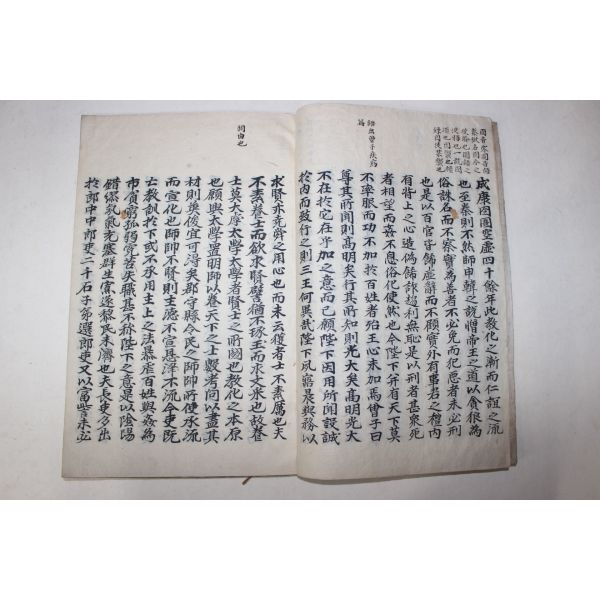 成康囹圄空虛四十餘年此教化之漸而仁誼之流
也至秦則不然師申韓之說憎帝王之道以貪狠為
俗誅名而不察實為善者不必免而犯惡者未必刑
也是以百官皆飾虛辭而不顧實外有事君之禮內
有背上之心造偽飾詐趨利無恥是以刑者甚衆死
者相望而姦不息俗化使然也今陛下并有天下莫
不率服而功不加於百姓者殆王心未加焉曾子曰
尊其所聞則高明矣行其所知則光大矣高明光大
不在於它在乎加之意而已願陛下因用所聞設誠
於內而致行之則三王何異哉陛下夙寤晨興務以
曾子疾病
篇
求賢亦堯舜之用心也而未云獲者士不素厲也夫
不素養士而欲求賢譬猶不琢玉而求文采也故養
士莫大虖太學太學者賢士之所關也教化之本原
也願興太學置明師以養天下之士數考問以盡其
材則英俊宜可得矣郡守縣令民之師帥所使承流
而宣化也師帥不賢則主德不宣恩澤不流今吏既
亡教訓於下或不承用主上之法暴虐百姓與姦為
市貧窮孤弱冤苦失職甚不稱陛下之意是以陰陽
錯繆氛氣充塞群生寡遂黎民未濟也夫長吏多出
於郎中中郎吏二千石子弟選郎吏又以富訾未必
關由也